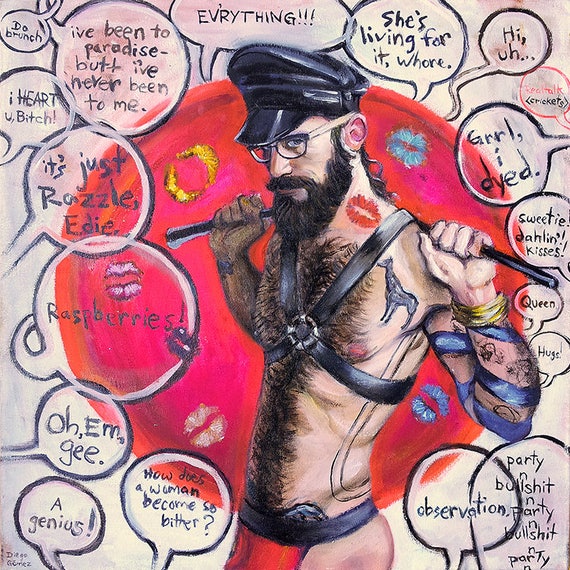 Da
brunch
ive been to
paradise-
butt ive
never been
to me.
EV'RYTHING!!!
She's
living for
it, whore.
Hi,
uh...
realtalk
<crickets>
i HEART
u, Bitch!
Grrl,
i
dyed.
it's just
Razzle,
Edie.
sweetie!
dahlin'!
kisses!
Raspberries!
Queen
Hugs!
Oh, Em,
gee.
A
genius!
How does
a woman
become so
bitter?
observation.
party
n
bullshit
n
party
n
bullshit
n
party
n
Diego
Gómez